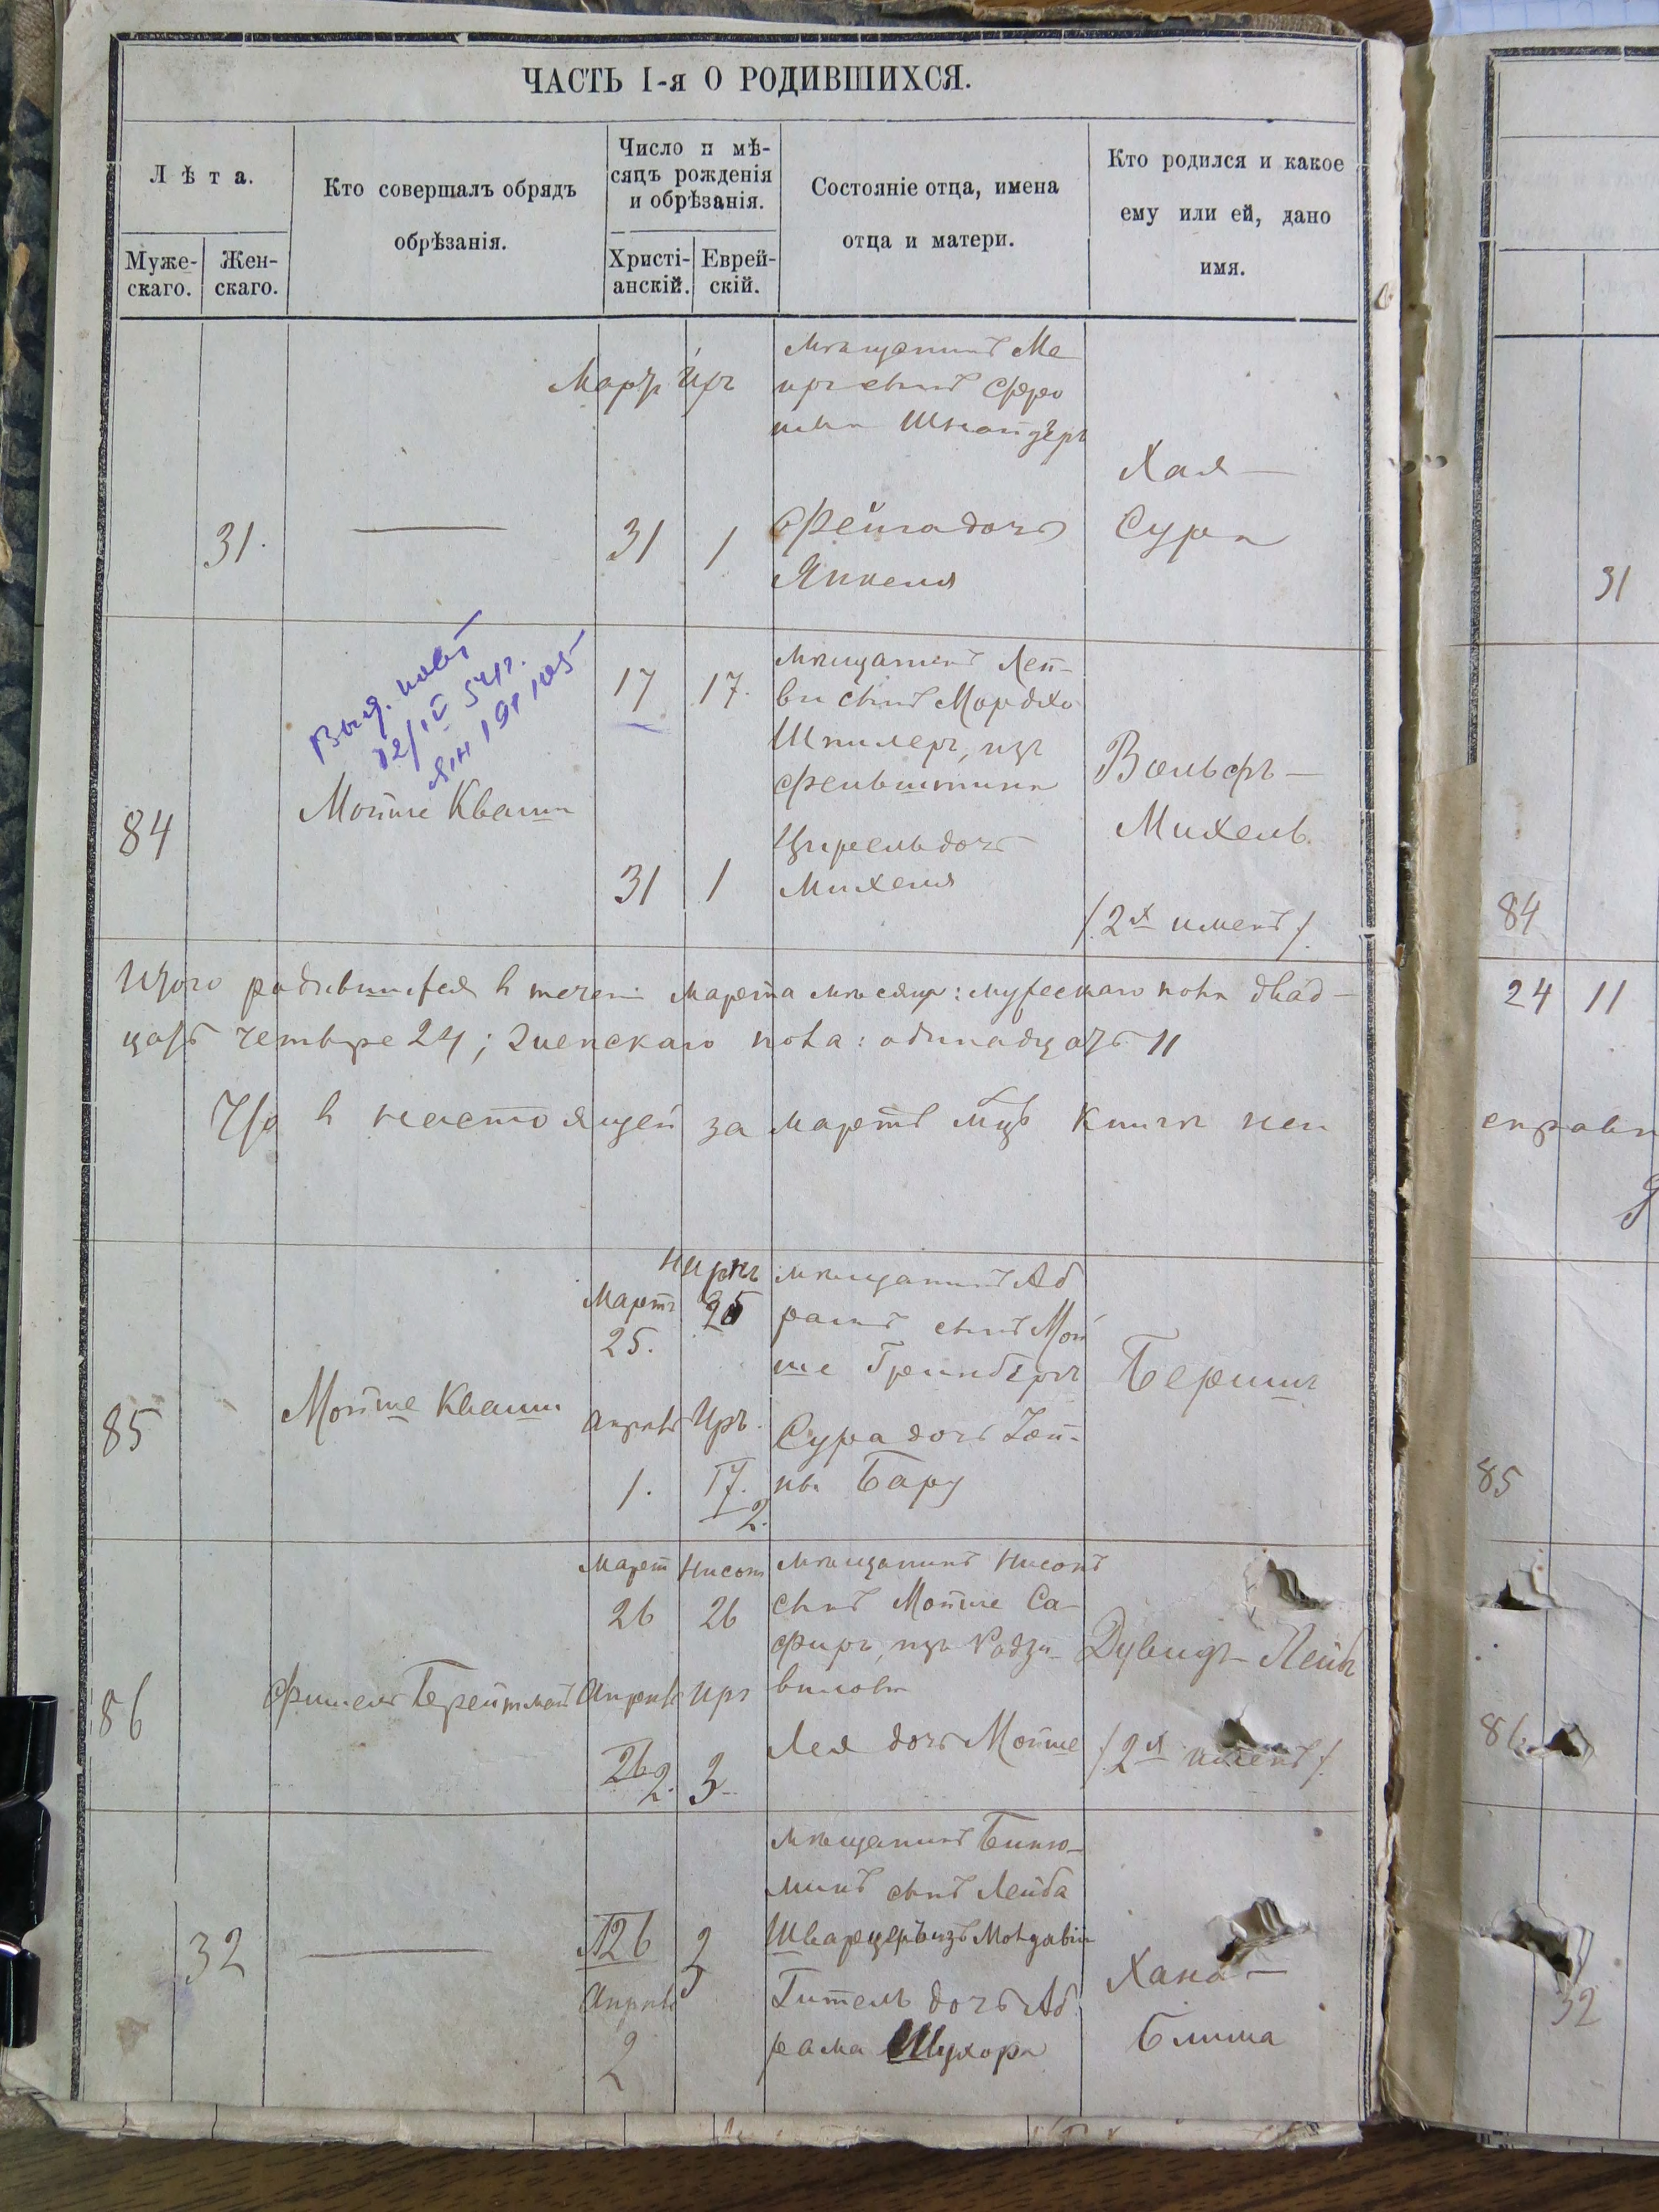 ЧАСТЬ I-я О РОДИВШИХСЯ.
Лѣта.
Муже-
скаго.
Жен-
скаго.
Кто совершалъ обрядъ
обрѣзанія.
Число п мѣ-
сяцъ рожденія
и обрѣзанія.
Христі-
анскій.
Еврей-
скій.
Состояніе отца, имена
отца и матери.
Кто родился и какое
ему или ей, дано
имя.
31.
31
1
мѣщанинъ Ме
Шнайдеръ
Фейга дочь
Янкеля
Хая —
Сура
31
84
Мойше Кваша
17
17.
31
1
мѣщанинъ Лей-
ви сынъ Мордхо
Шпилеръ, изъ
Фельштина
Цирель дочь
Михеля
Вольфъ —
Михель.
/.2х именъ/.
84
Итого родившихся в течен марта мѣсяца: мужескаго пола двад-
цать четыре 24; женскаго пола: одинадцать 11
24 11
Что в настоящей за мартъ мцъ книги неи
справн
85
Мойше Кваша
Мартъ
25.
25
Апрель
1.
Иръ.
17.
2.
мѣщанинъ Аб
рамъ сынъ Мой
ше Гринбергъ
Сура дочь
Бару
Бершъ
85
86
Фишель Брейтман
Март
26
Нисонъ
26
Апрель
26
2.
Иръ
3
мѣщанинъ Нисонъ
сынъ Мойше Са-
фиръ, изъ Радзи-
вилова
Лея дочь Мойше
Дувидъ-Лейб
/.2х именъ/.
86
32
26
Апрель
2
2
мѣщанинъ Биню-
минъ сынъ Лейба
Шварцеръ изъ Молдавіи
Гитель дочь Аб
рама Шухора
Хана —
Блима
32